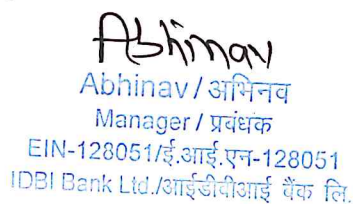 Abhinav
Abhinav / अभिनव
Manager / प्रबंधक
EIN-128051/ई.आई.एन-128051
IDBI Bank Ltd./आईडीबीआई बैंक लि.